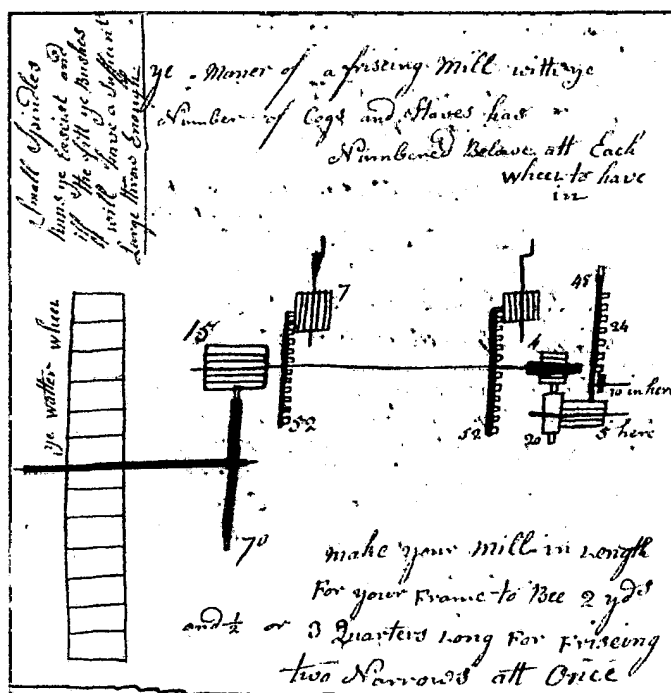 Small Spindles
Runs ye Easeiest and
if the Mill ye Bushes
if will have a
Large throw Enough
ye Maner of a friseing Mill with ye
Number of Cogs and Staves has
Numbered Below att Each
wheel to have
in
ye watter wheel
15
7
52
52
4
45
24
10 in here
20
5 here
70
make your Mill in Length
For your Frame to Bee 2 yds
and ½ or 3 Quarters Long For Friseing
two Narrows att Once